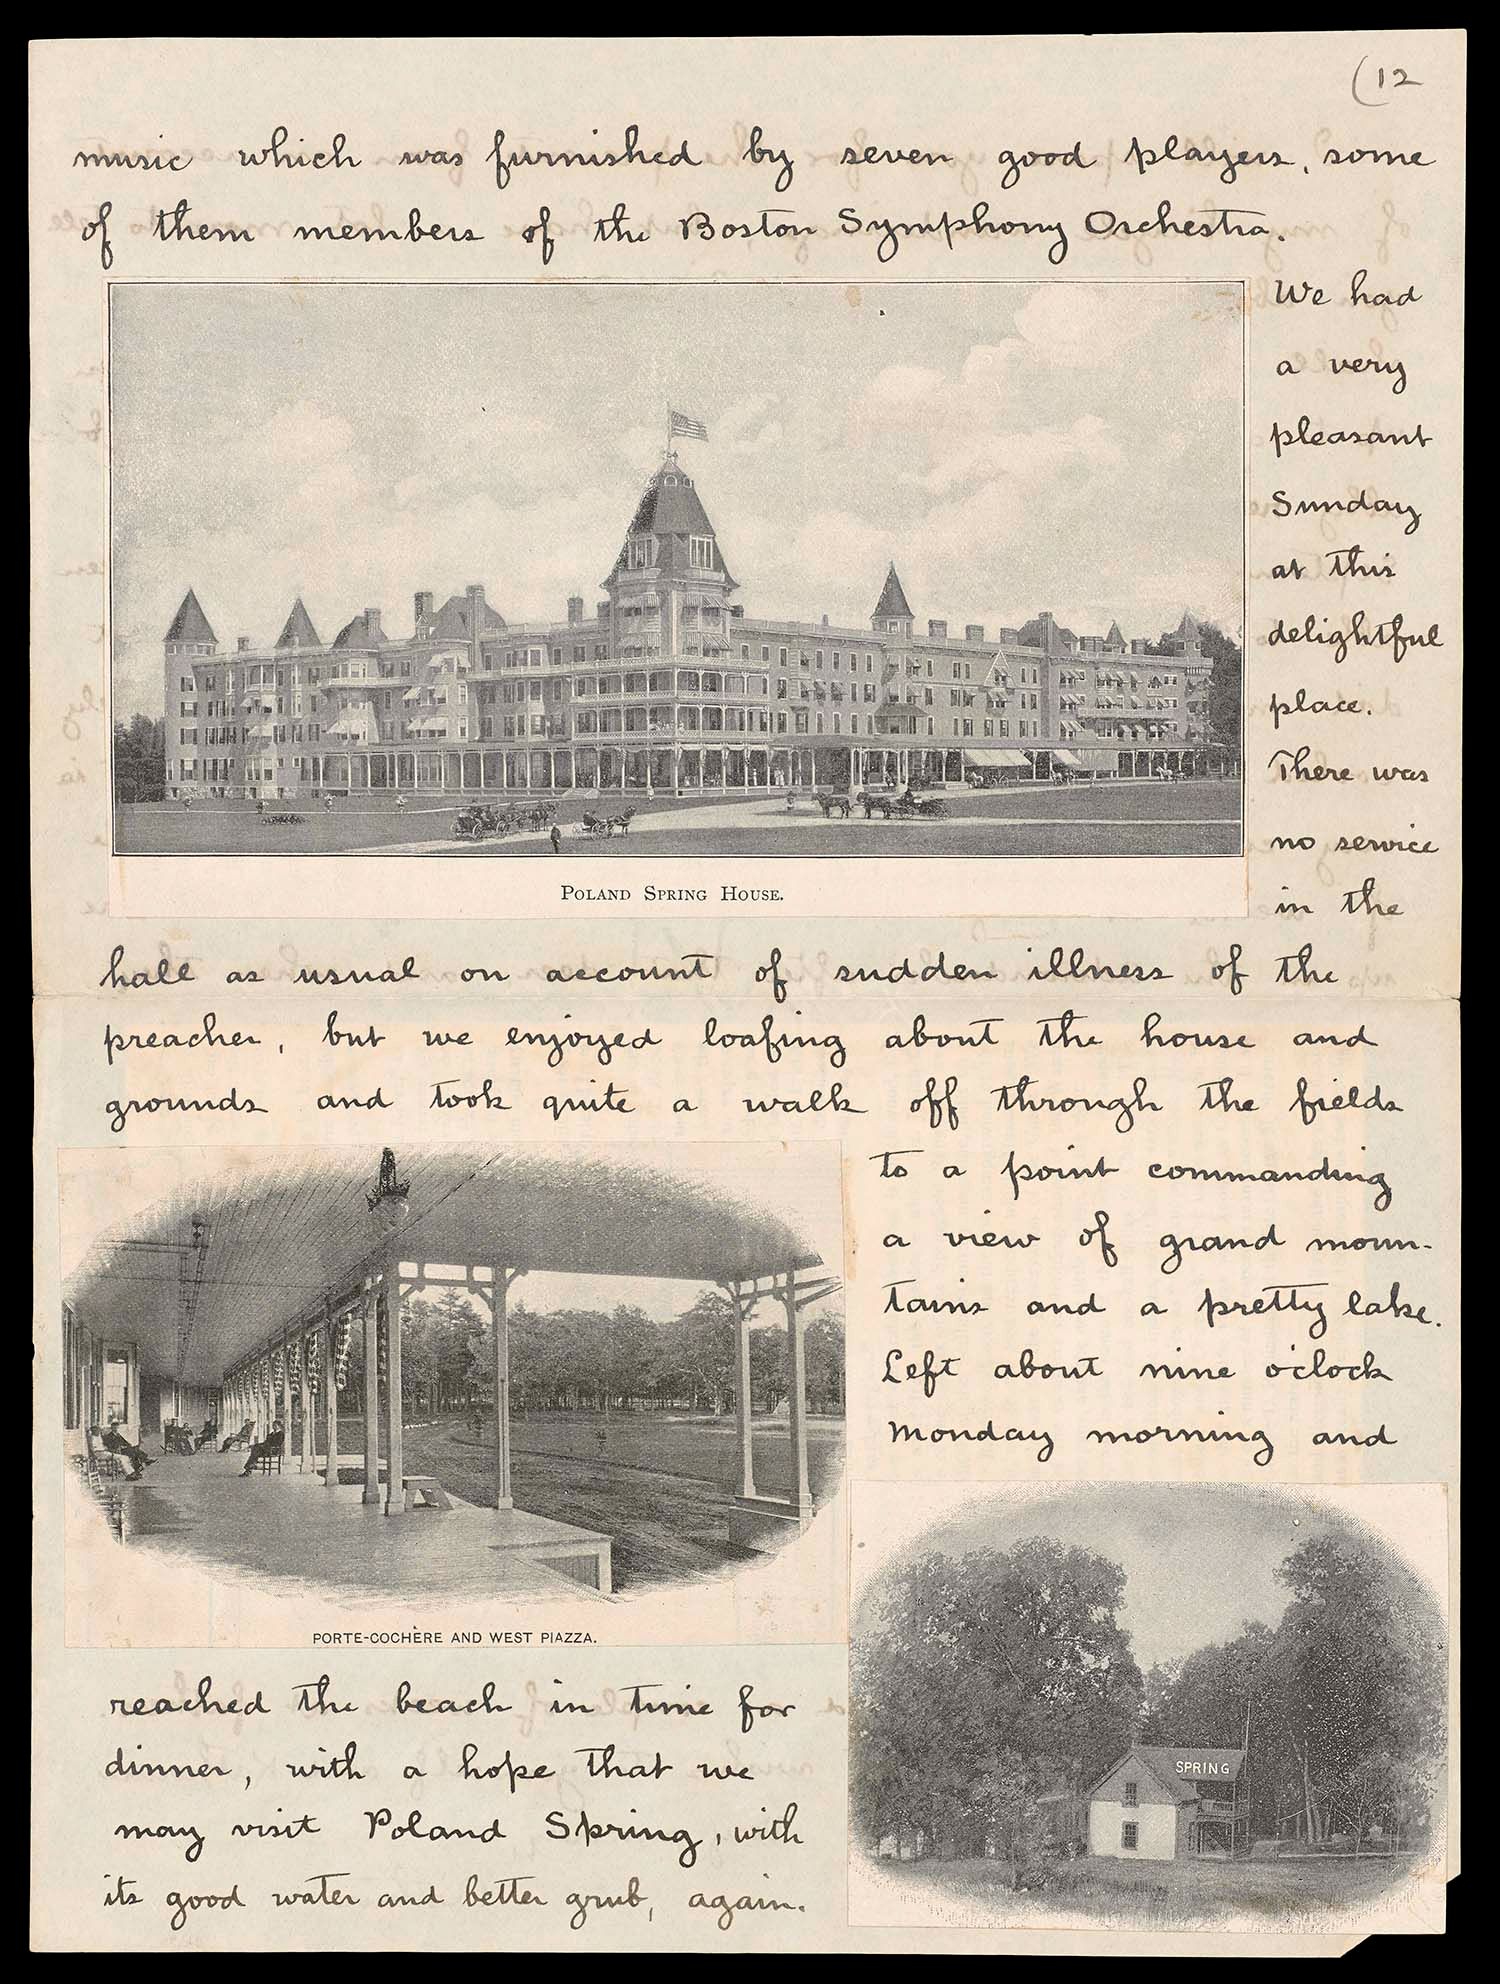 (12
music which was furnished by seven good players, some
of them members of the Boston Symphony Orchestra.
We had
a very
pleasant
Sunday
at this
delightful
place.
There was
no service
in the
POLAND SPRING HOUSE.
hall as usual on account of sudden illness of the
preacher, but we enjoyed loafing about the house and
grounds and took quite a walk off through the fields
to a point commanding
a view of grand moun-
tains and a pretty lake.
Left about nine o'clock
Monday morning and
PORTE-COCHÈRE AND WEST PIAZZA.
SPRING
reached the beach in time for
dinner, with a hope that we
may visit Poland Spring, with
its good water and better grub, again.